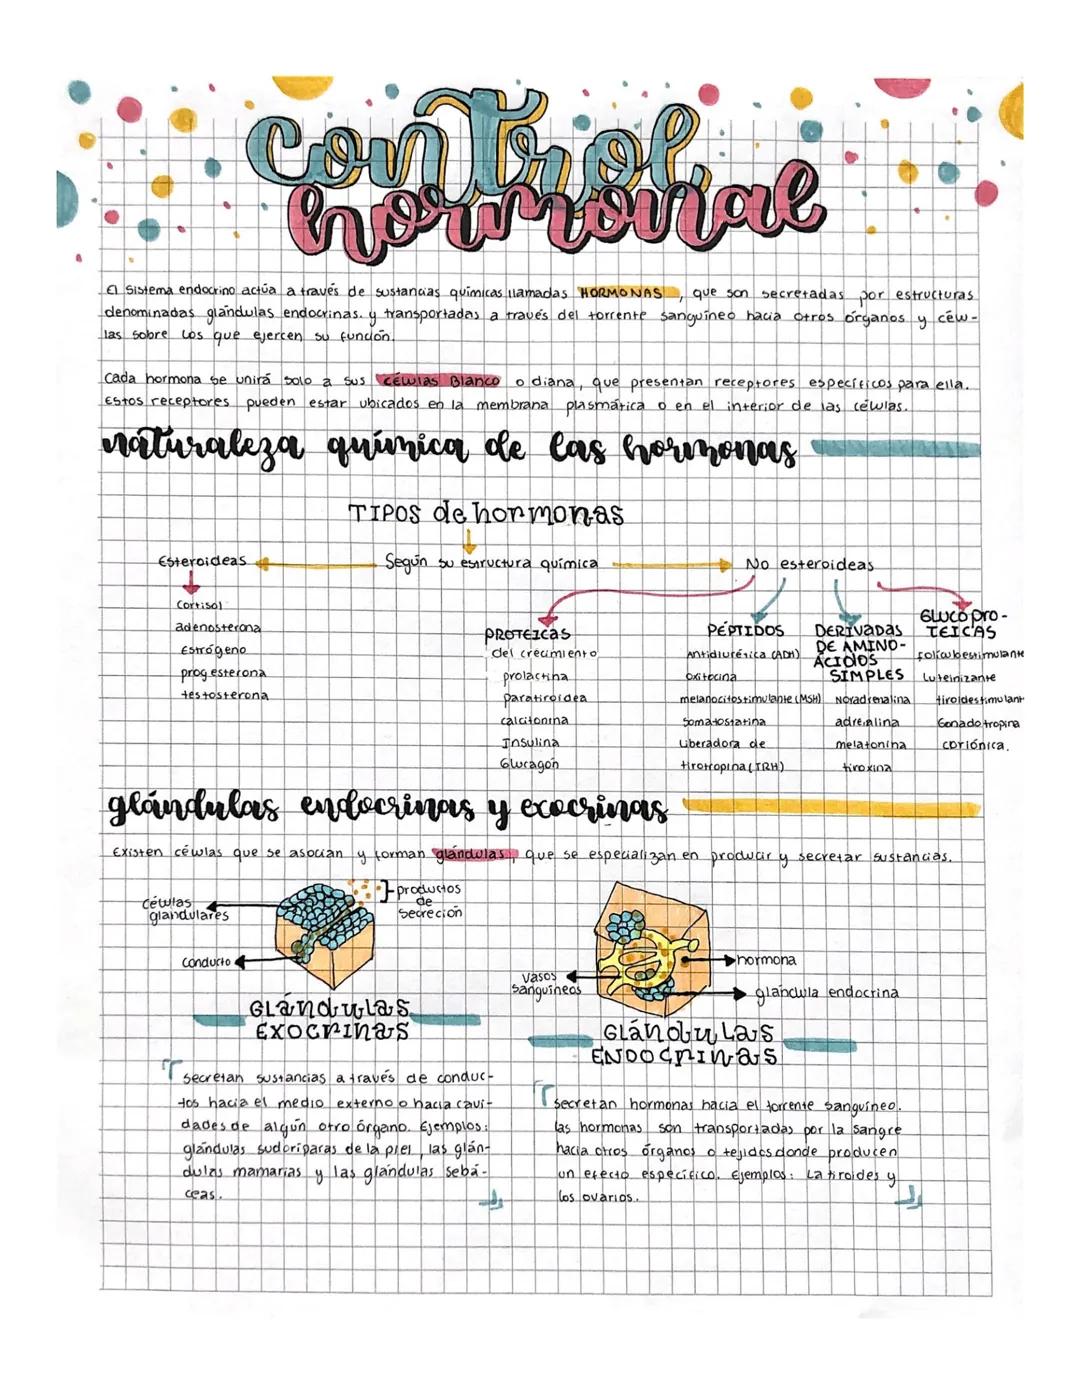 control
hormonal
El sistema endocrino actúa a través de sustancias químicas llamadas HORMONAS, que son secretadas por estructuras
denominadas glándulas endocrinas. y transportadas a través del torrente sanguíneo hacia otros órganos y célu-
las sobre los que ejercen su función.
Cada hormona se unirá solo a sus células Blanco o diana, que presentan receptores específicos para ella.
Estos receptores pueden estar ubicados en la membrana plasmática o en el interior de las células.
naturaleza química de las hormonas
TIPOS de hormonas
Esteroideas
Según su estructura química
No esteroideas
Cortisol
adenosterona
Estrógeno
progesterona
testosterona
PROTEICAS
del crecimiento
prolactina
Paratiroidea
calcitonina
Insulina
Glucagón
PÉPTIDOS
Antidiurética (ADH)
oxitocina
melanocitostimulante (MSH)
Somatostatina
Liberadora de
tirotropina (TRH)
DERIVADAS
DE AMINO-
ÁCIDOS
SIMPLES
Noradrenalina
adrenalina
melatonina
tiroxina
GLUCOPRO-
TEICAS
foliculoestimulante
Luteinizante
tiroidestimulant
Gonadotropina
coriónica.
glándulas endocrinas y exocrinas
Existen células que se asocian y forman glándulas, que se especializan en producir y secretar sustancias.
células
glandulares
productos
de
secreción
conducto
GLÁNDULAS
EXOCRINAS
vasos
sanguíneos
hormona
glándula endocrina
GLÁNDULAS
ENDOCRINAS
secretan sustancias a través de conduc-
tos hacia el medio externo o hacia cavi-
dades de algún otro órgano. Ejemplos:
glándulas sudoríparas de la piel, las glán-
dulas mamarias y las glándulas sebá-
ceas.
secretan hormonas hacia el torrente sanguíneo.
las hormonas son transportadas por la sangre
hacia otros órganos o tejidos donde producen
un efecto específico. Ejemplos: La tiroides y
los ovarios.